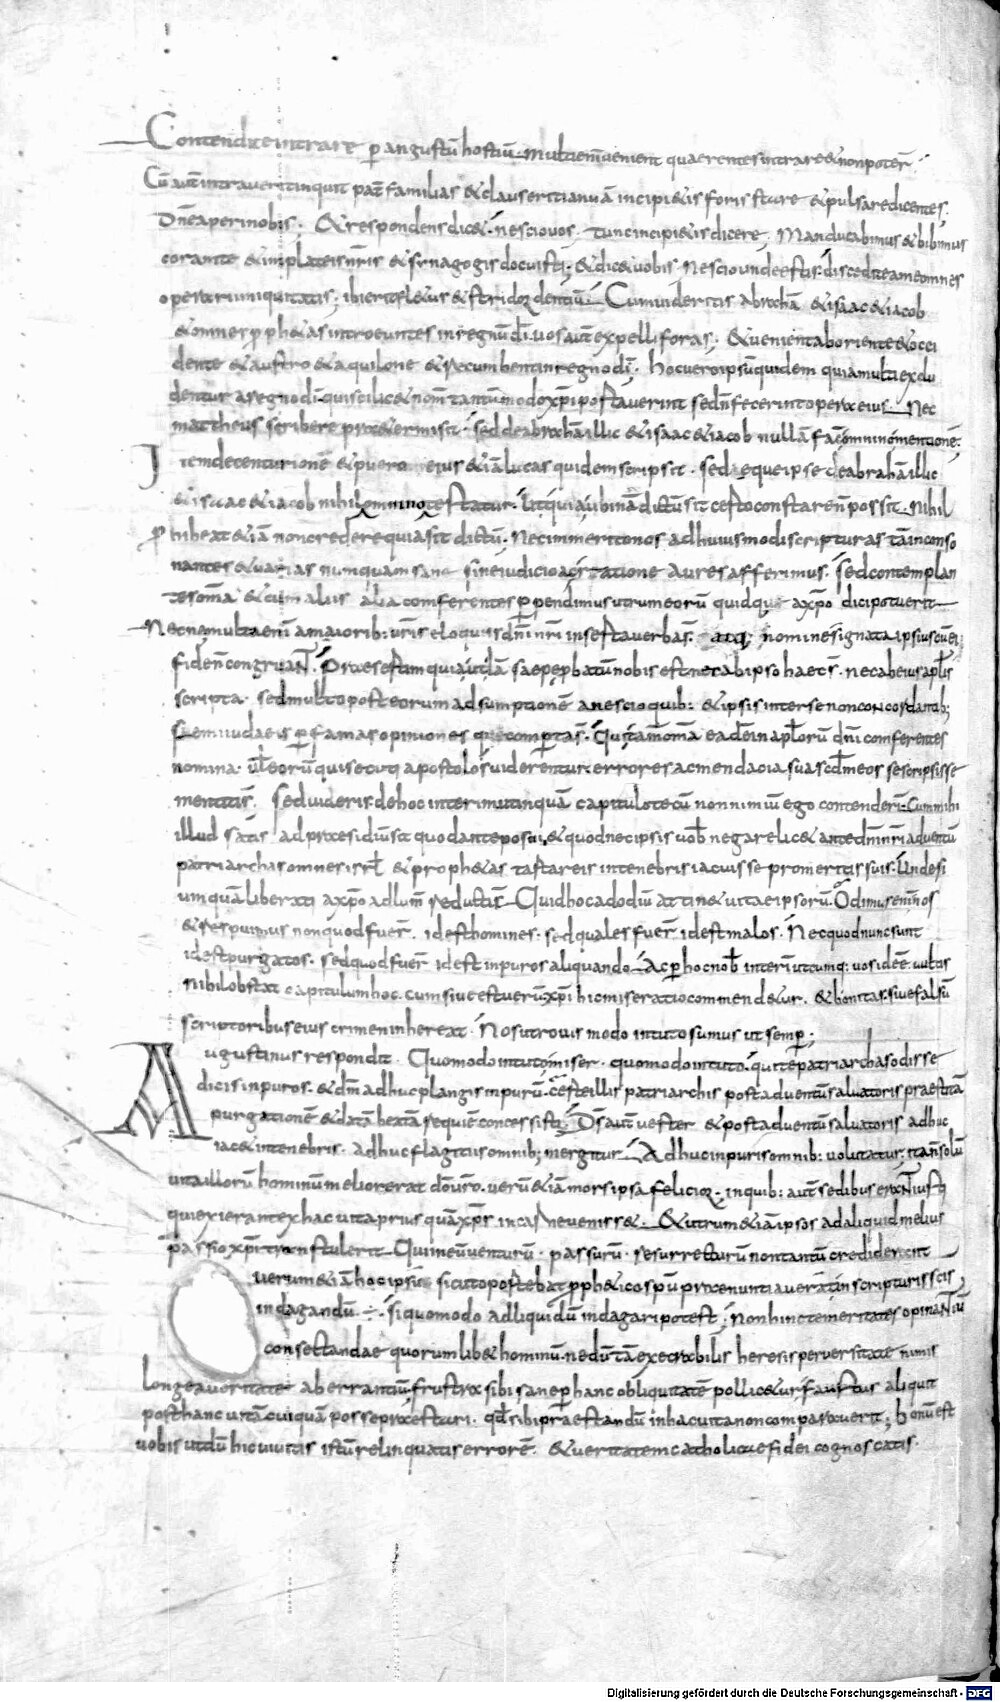 Contendite intrare p angustū hostiū. multi enī venient quaerentes intrare & non poteř
Cū autē intraverit inquit pať familias & clauserit ianuā incipi&is foris stare & pulsare dicentes,
Dn̄e aperi nobis. & respondens dic&. nescio vos. tunc incipi&is dicere, Manducabimus & bibimus
coram te & in plateis nr̄is & synagogis docuisti. & dic& vobis nescio unde estis. discedite a me omnes
operarii iniquitatis, ibi erit fl&us & stridor dentiū. Cum videritis abrahā & isaac & iacob
& omnes proph&as introeuntes in regnū dī. vos autē expelli foras. & venient ab oriente & occi
dente & austro & aquilone & recumbent in regno dī. hoc vero ipsū quidem quia multi exclu
dentur a regno dī. qui scilic& nom̄ tantūmodo xp̄i portaverint sed n̄ fecerint opera eius. Nec
mattheus scribere praetermisit. sed de abrahā illic & isaac & iacob nullā fac̄ omnino mentionē.
Item de centurionē & puero eius &iā lucas quidem scripsit. sed eque ipse de abrahā illic
& isaac & iacob nihil omnino testatur. ut quia ubinā dictū sit certo constare n̄ possit. Nihil
phibeat &iā non credere quia sit dictū. Nec inmerito nos ad huiusmodi scripturas tā inconso
nantes & varias numquam sane sine iudicio ac ratione aures afferimus. sed contemplan
tes om̄a & cum aliis alia conferentes perpendimus utrum eorū quidque a xp̄o dici potuerit
Necne multa enī a maiorib: vr̄is eloquiis dn̄i nr̄i inserta verba s̄. nomine signata ipsius cū ei
fide n̄ congruant. Praesertim quia ut iā saepe pbatum nobis est nec ab ipso haec s̄. nec ab eius apl̄is
scripta. sed multo post eorum adsumptionē a nescio quib: & ipsis inter se non concordantib;
semiiudaeis p famas opiniones que comperta s̄. Qui tam̄ om̄a eadē in apl̄orū dn̄i conferentes
nomina. vl̄ eorū qui secuti apostolos viderentur. errores ac mendacia sua scdm̄ eos se scripsisse
mentiti s̄. sed videris. de hoc interim utinquā capitulo tecū non nimiū ego contenderī. Cum mihi
illud satis ad praesidiū sit quod ante posui, & quod nec ipsis vob̄ negare lic& ante dn̄i nr̄i adventū
patriarchas omnes isrl̄ & proph&as tartareis in tenebris iacuisse pro meritis suis. Unde si
umquā liberati a xp̄o ad lum̄ reducti s̄. Quid hoc ad odiū attin& vitae ipsorū. Odimus enī nos
& respuimus non quod fuer̄. id est homines. sed quales fuer̄ id est malos. Nec quod nunc sunt
id est purgatos. sed quod fuer̄ id est inpuros aliquando. ac p hoc nob̄ interī utcumq: vos id ēē vultis
nihil obstat capitulum hoc. cum sive est verū xp̄i hic miseratio commend&ur. & bonitas. sive falsū
scriptoribus eius crimen inhereat. Nos utrovis modo in tuto sumus ut semp̄;
Augustinus respondit. Quomodo in tuto miser. quomodo in tuto. qui te patriarchas odisse
dicis inpuros. & dm̄ adhuc plangis inpurū. certe illis patriarchis post adventū salvatoris praestitā
purgationē & datā beatā requiē concessisti. Ds̄ autē vester & post adventū salvatoris adhuc
iac& in tenebris. adhuc flagitiis omnib; mergitur. Adhuc inpuris omnib: volutatur. n̄ tan̄ solū
vita illorū hominū melior erat dō vr̄o. verū &iā mors ipsa felicior. in quib: autē sedibus erant iusti
qui exierant ex hac vita prius quā xp̄s in carne venisset. & utrum &iā ipsos ad aliquid melius
passio xp̄i transtulerit. Qui n̄ eū venturū. passurū. resurrecturū non tantū crediderunt
verum &iā hoc ipsū sicut oportebat p proph&icos pū praenuntiaverunt in scripturis scis,
indagandū. ÷ si quo modo ad liquidū indagari potest; Non hinc temeritates opinantiū
consectandae quorumlib& hominū. nedū tā execrabilis heresis perversitate nimis
longe a veritate aberrantiū. frustra sibi sane p hanc obliquitatē pollic&ur faustus aliquit
post hanc vitā cuiquā posse praesturi. qd̄ sibi praestandū in hac vita non comparaverit; bonū est
vobis ut dū hic vivitis istū relinquatis errorē. & veritatem catholicae fidei cognoscatis.
Digitalisierung gefördert durch die Deutsche Forschungsgemeinschaft - DFG